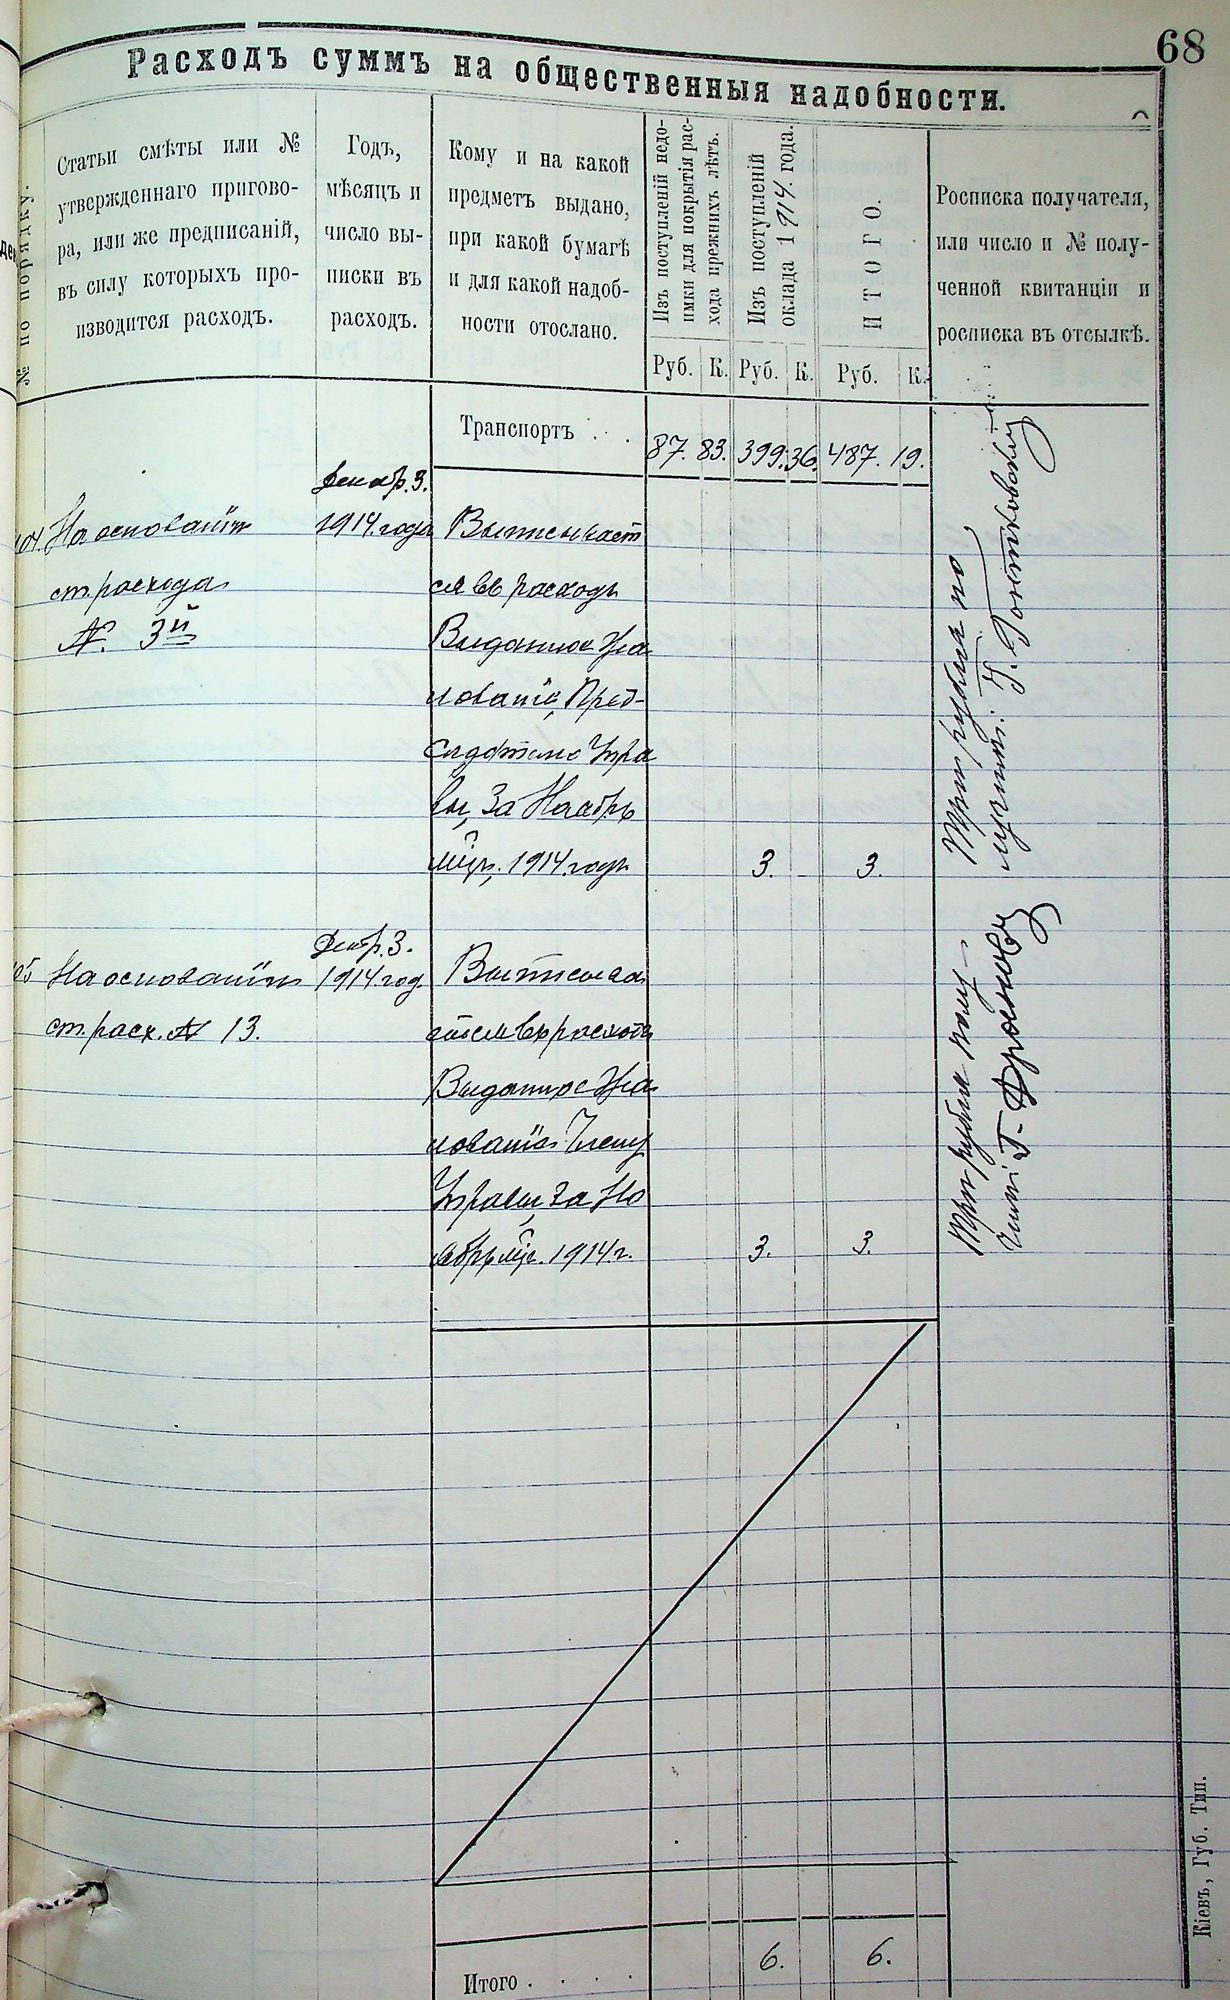 68
Расходъ суммъ на общественныя надобности.
№ по порядку.
Статьи смѣты или №
утвержденнаго пригово-
ра, или же предписаній,
въ силу которыхъ про-
изводится расходъ.
Годъ,
мѣсяцъ и
число вы-
писки въ
расходъ.
Кому и на какой
предметъ выдано,
при какой бумагѣ
и для какой надоб-
ности отослано.
Изъ поступленій недо-
имки для покрытія рас-
хода прежнихъ лѣтъ.
Изъ поступленій
оклада 1914 года.
ИТОГО.
Росписка получателя,
или число и № полу-
ченной квитанціи и
росписка въ отсылкѣ.
Руб. К. Руб. К. Руб. К.
Транспортъ . . . 87. 83. 399. 36. 487. 19.
Декабр. 3.
104. На основаніи 1914. года Выписывает
ст. расхода ся въ расходъ
№. 3й Выданное Жа
лованіе, Пред-
сѣдателю Упра
вы, За Ноябрь
мѣц. 1914. годъ 3. 3.
Три рубля по
лучилъ: Г.
Декбр. 3.
105 На основаніи 1914. год. Выписыва
ст. расх. № 13. ется въ расходъ
Выданное Жа
лованіе Члену
Управы, за Но
ябрь мѣс. 1914. г. 3. 3.
Три рубля полу-
чилъ Г.
Итого . . . . 6. 6.
Кіевъ, Губ. Тип.